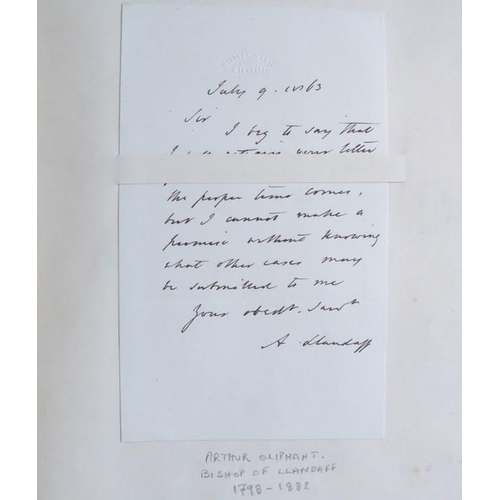 July 9. 1863
Sir
I beg to say that
I your letter
the proper time comes,
but I cannot make a
promise without knowing
what other cases may
be submitted to me
Your obedt. Servt
A. Llandaff
ARTHUR OLIPHANT.
BISHOP OF LLANDAFF
1798-1882